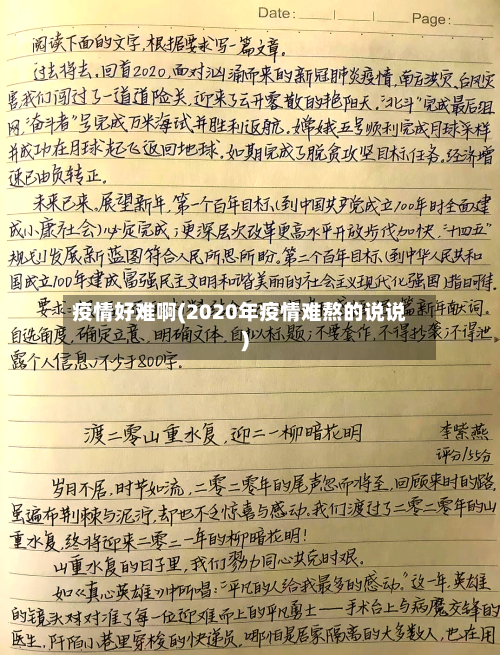 Date: Page:
阅读下面的文字,根据要求写一篇文章。
过去将去。回首2020,面对汹涌而来的新冠肺炎疫情,南方洪灾,台风灾
害,我们闯过了一道道险关,迎来了云开雾散的艳阳天。"北斗"完成最后组
网,"奋斗者"号完成万米海试并胜利返航,嫦娥五号顺利完成月球采样
并成功在月球起飞返回地球,如期完成了脱贫攻坚目标任务。经济增
速已由负转正。
未来已来。展望新年,第一个百年目标(到中国共产党成立100年时全面建
成小康社会)必定完成;更深层次改革更高水平开放步伐加快,"十四五"
规划发展新蓝图符合人民所思所盼。第二个百年目标(到中华人民共和
国成立100年建成富强民主文明和谐美丽的社会主义现代化强国)指日可待。
要求: 篇新年献词。
疫情好难啊(2020年疫情难熬的说说
)
自选角度,确定立意,明确文体,自拟标题;不要套作,不得抄袭;不得泄
露个人信息;不少于800字。
渡二零山重水复,迎二一柳暗花明 李紫燕
评分/55分
岁月不居,时节如流,二零二零年的尾声忽而将至,回顾来时的路
虽遍布荆棘与泥泞,却也不乏惊喜与感动。我们渡过了二零二零年的山
重水复,终将迎来二零二一年的柳暗花明!
山重水复的日子里,我们勠力同心共克时艰。
如《真心英雄》中所唱:"平凡的人给我最多的感动。"这一年,英雄
的镜头对对准了每一位迎难而上的平凡勇士——手术台上与病魔交锋的
医生,阡陌小巷里穿梭的快递员,哪怕是居家隔离的大多数人,也在用